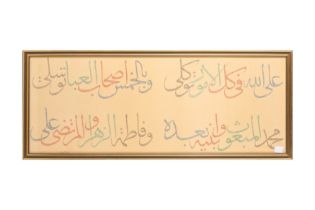 على الله في كل الامور توكلي وبالخمس اصحاب العبا توسلي
محمد المبعوث وابنيه بعده وفاطمة الزهرا والمرتضى علي